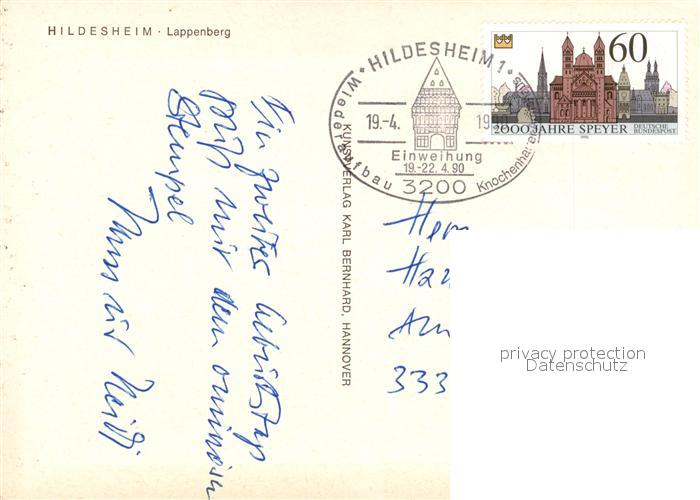 HILDESHEIM · Lappenberg
Ein zweiter Geburtstags
gruß mit dem ominösen
Stempel
und Heidi
KUNSTVERLAG KARL BERNHARD, HANNOVER
HILDESHEIM 1
Wiederaufbau Knochenhauer
19.-4. 19
Einweihung
19.-22. 4. 90
3200
60
2000 JAHRE SPEYER
DEUTSCHE
BUNDESPOST
Herr
333
privacy protection
Datenschutz